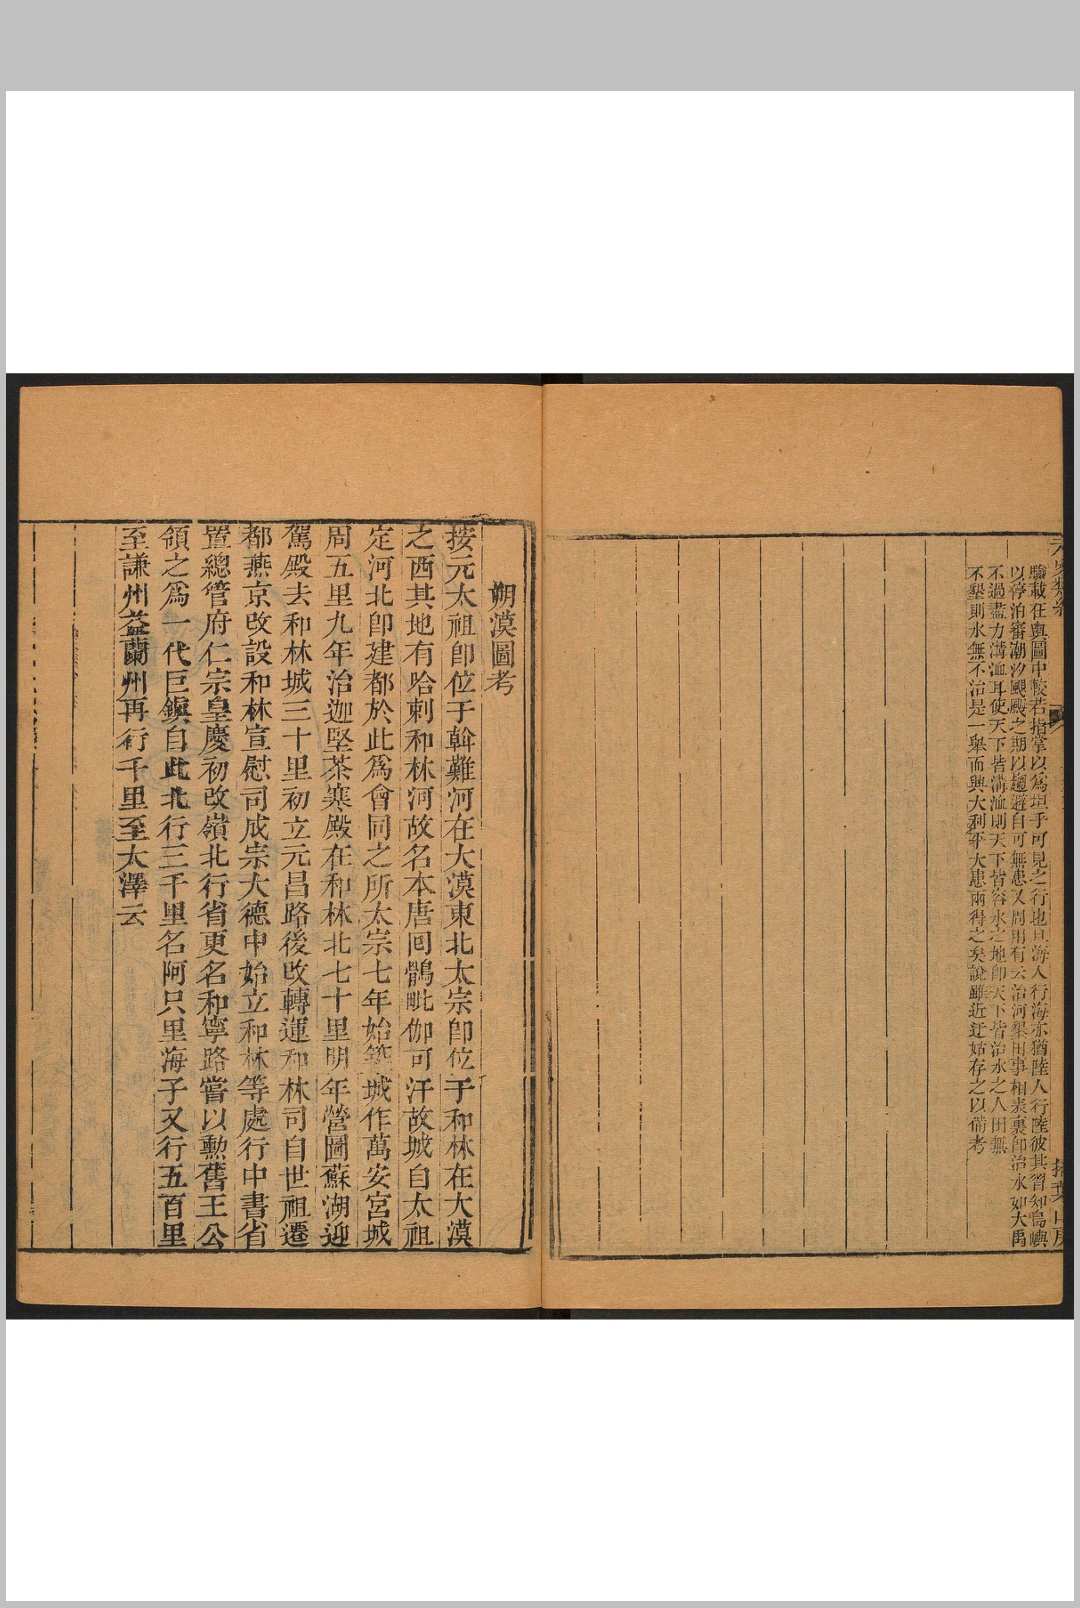 驗載在輿圖中較若指掌以爲坦乎可見之行也且海人行海亦猶陸人行陸彼其習知島嶼
以停泊審潮汐颶颺之期以趨避自可無患又周用有云治河墾田事相表裏即治水如大禹
不過盡力溝洫耳使天下皆溝洫則天下皆容水之地即天下皆治水之人田無
不墾則水無不治是一舉而興大利平大患兩得之矣說雖近迂姑存之以備考
朔漠圖考
按元太祖即位于斡難河在大漠東北太宗即位于和林在大漠
之西其地有哈剌和林河故名本唐回鶻毗伽可汗故城自太祖
定河北即建都於此爲會同之所太宗七年始築城作萬安宮城
周五里九年治迦堅茶寒殿在和林北七十里明年營圖蘇湖迎
駕殿去和林城三十里初立元昌路後改轉運和林司自世祖遷
都燕京改設和林宣慰司成宗大德中始立和林等處行中書省
置總管府仁宗皇慶初改嶺北行省更名和寧路嘗以勲舊王公
領之爲一代巨鎮自此北行三千里名阿只里海子又行五百里
至謙州益蘭州再行千里至大澤云